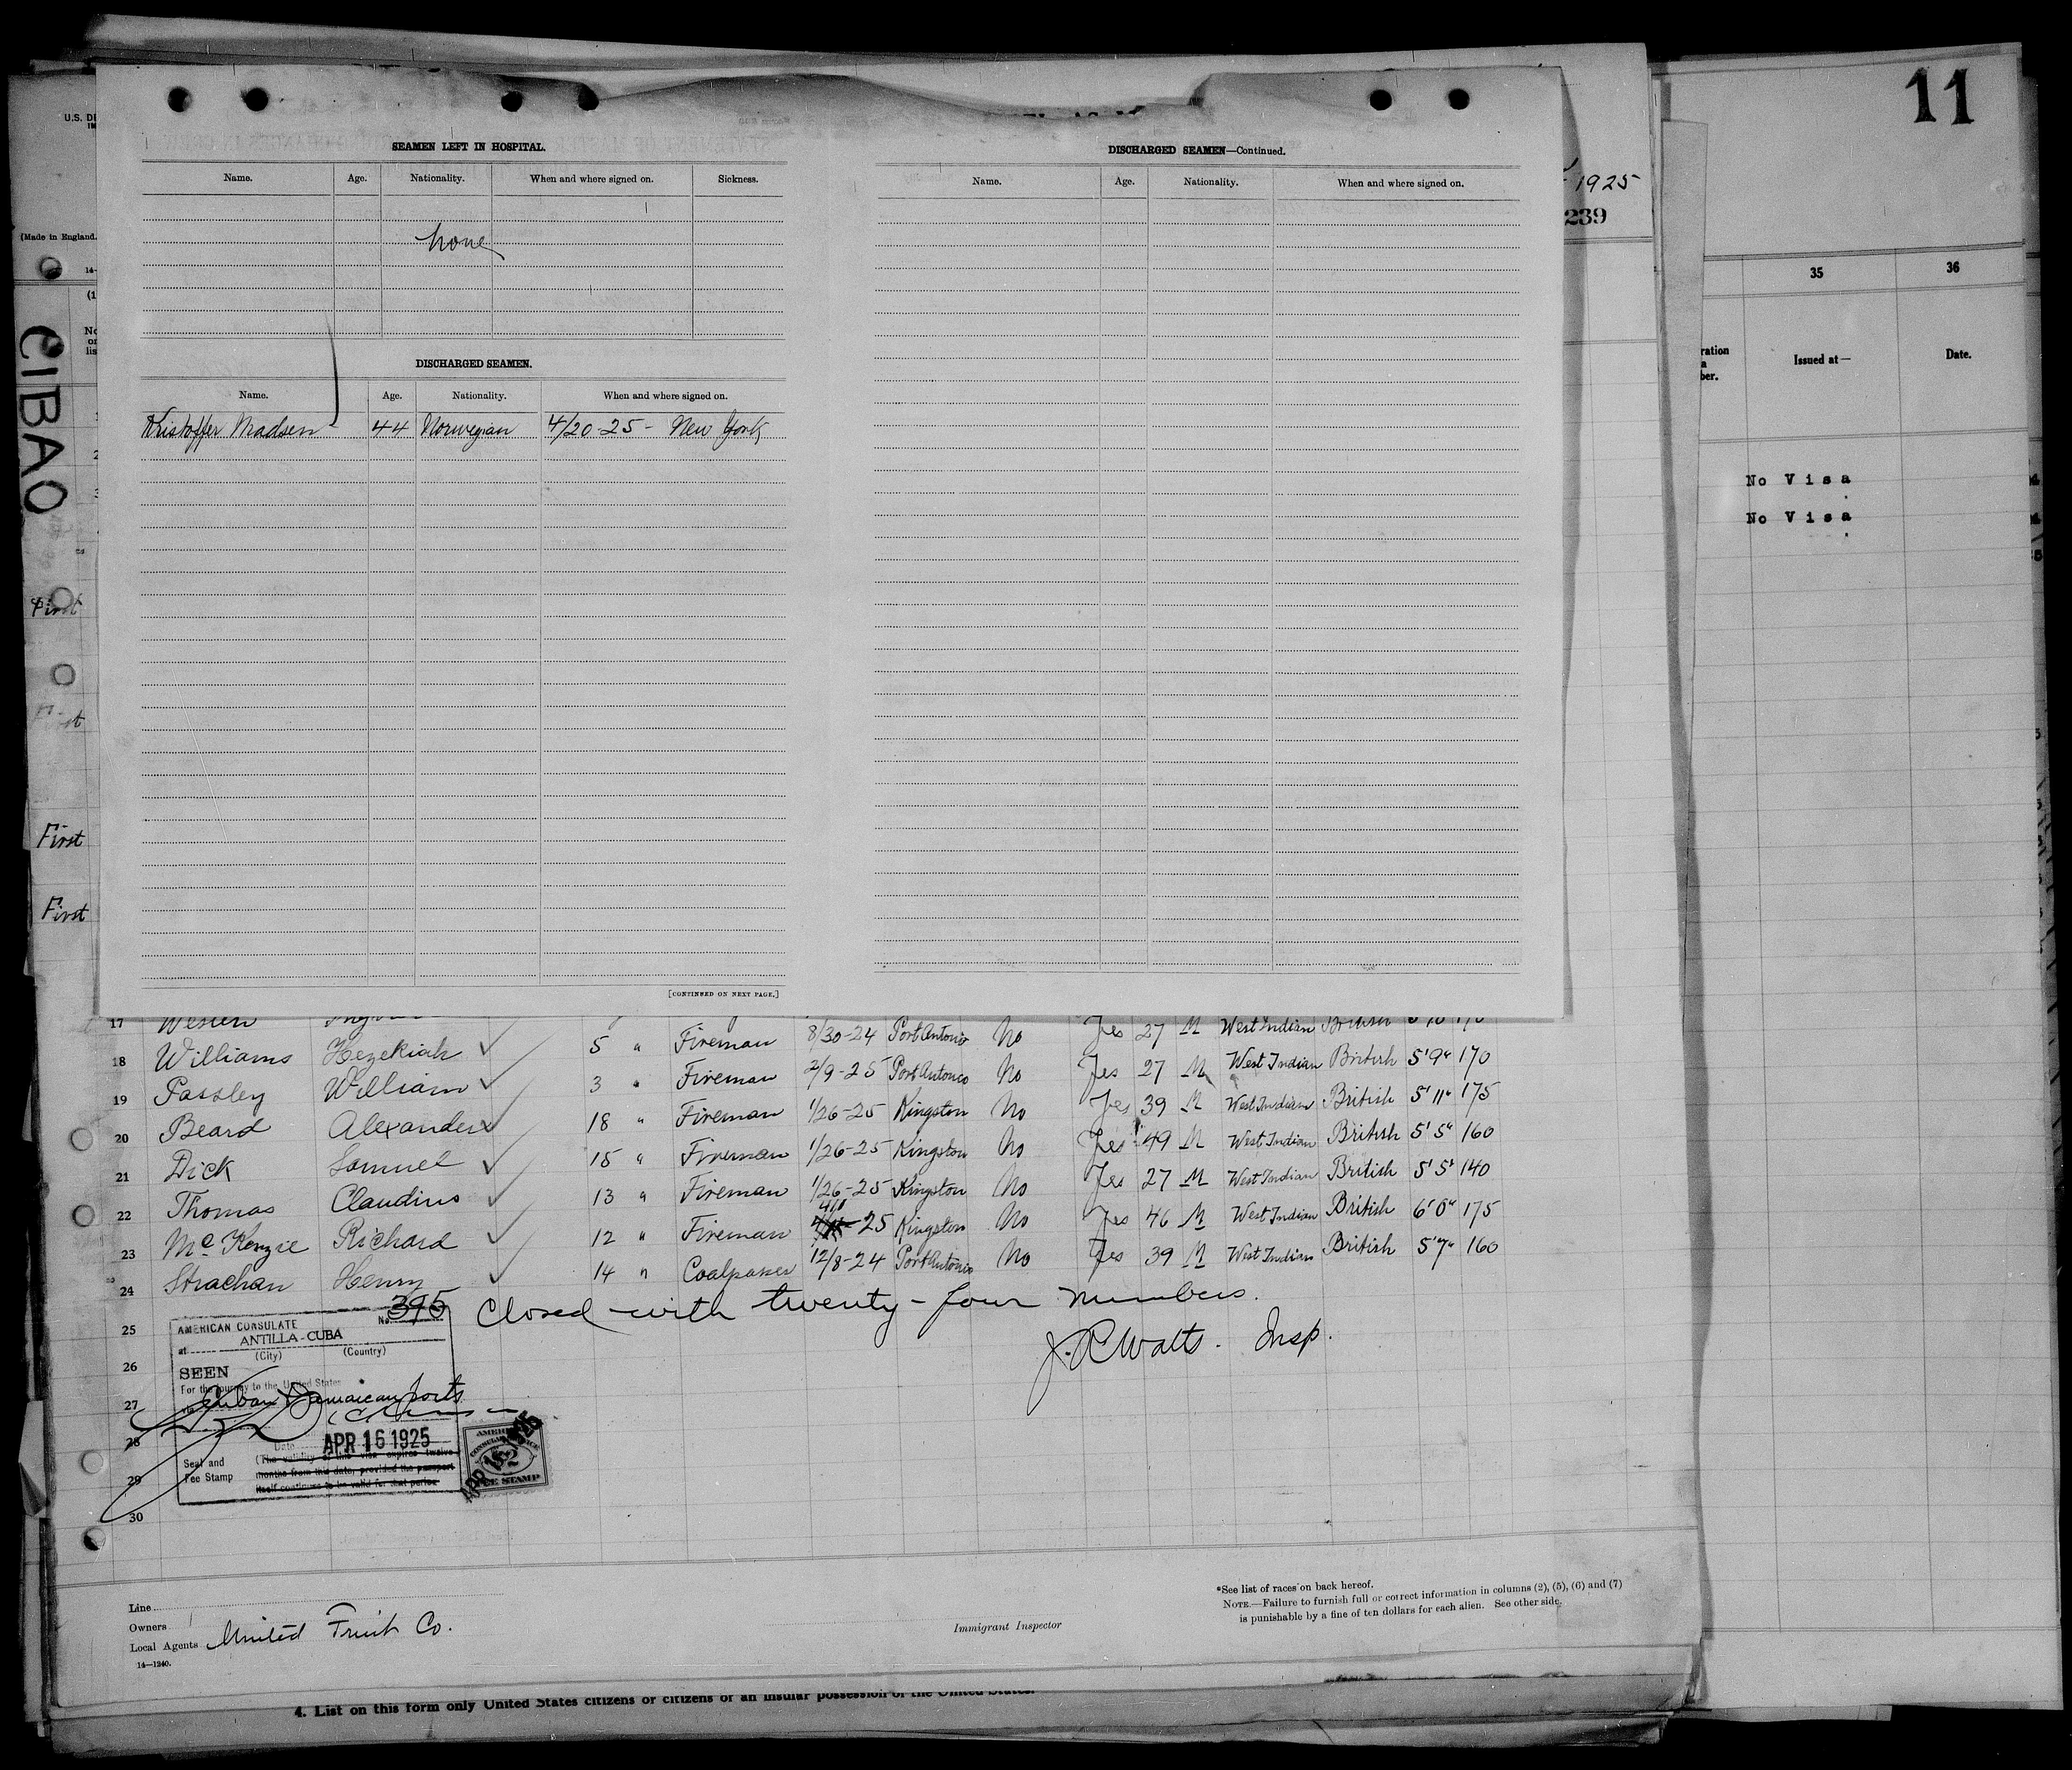 11
U.S. DE
SEAMEN LEFT IN HOSPITAL.
Name. Age. Nationality. When and where signed on. Sickness.
None
DISCHARGED SEAMEN.
Name. Age. Nationality. When and where signed on.
Kristoffer Madsen 44 Norwegian 4/20-25- New York
[CONTINUED ON NEXT PAGE.]
DISCHARGED SEAMEN—Continued.
Name. Age. Nationality. When and where signed on.
1925
239
(Made in England.
14-
CIBAO
First
First
First
First
35 36
Issued at— Date.
No Visa
No Visa
17 27 M West Indian British
18 Williams Hezekiah 5 " Fireman 8/30-24 Port Antonio No Yes 27 M West Indian British 5'9" 170
19 Passley William 3 " Fireman 2/9-25 Port Antonio No Yes 39 M West Indian British 5'11" 175
20 Beard Alexander 18 " Fireman 1/26-25 Kingston No Yes 49 M West Indian British 5'5" 160
21 Dick Samuel 15 " Fireman 1/26-25 Kingston No Yes 27 M West Indian British 5'5" 140
22 Thomas Claudius 13 " Fireman 1/26-25 Kingston No Yes 46 M West Indian British 6'0" 175
23 McKenzie Richard 12 " Fireman 25 Kingston No Yes 39 M West Indian British 5'7" 160
24 Strachan Henry 14 " Coalpasser 12/8-24 Port Antonio No
25
26
27
28
29
30
Closed with twenty-four numbers.
J. R. Watts. Insp.
No. 395
AMERICAN CONSULATE
at ANTILLA-CUBA
(City) (Country)
SEEN
For the journey to the United States
via Cuban & Jamaican ports
Date APR 16 1925
Seal and
Fee Stamp
(The validity of this visa expires twelve
months from this date, provided the passport
itself continues to be valid for that period.
Line
Owners
Local Agents United Fruit Co.
14—1240.
Immigrant Inspector
*See list of races on back hereof.
NOTE.—Failure to furnish full or correct information in columns (2), (5), (6) and (7)
is punishable by a fine of ten dollars for each alien. See other side.
4. List on this form only United States citizens or citizens of an insular possession of the United States.